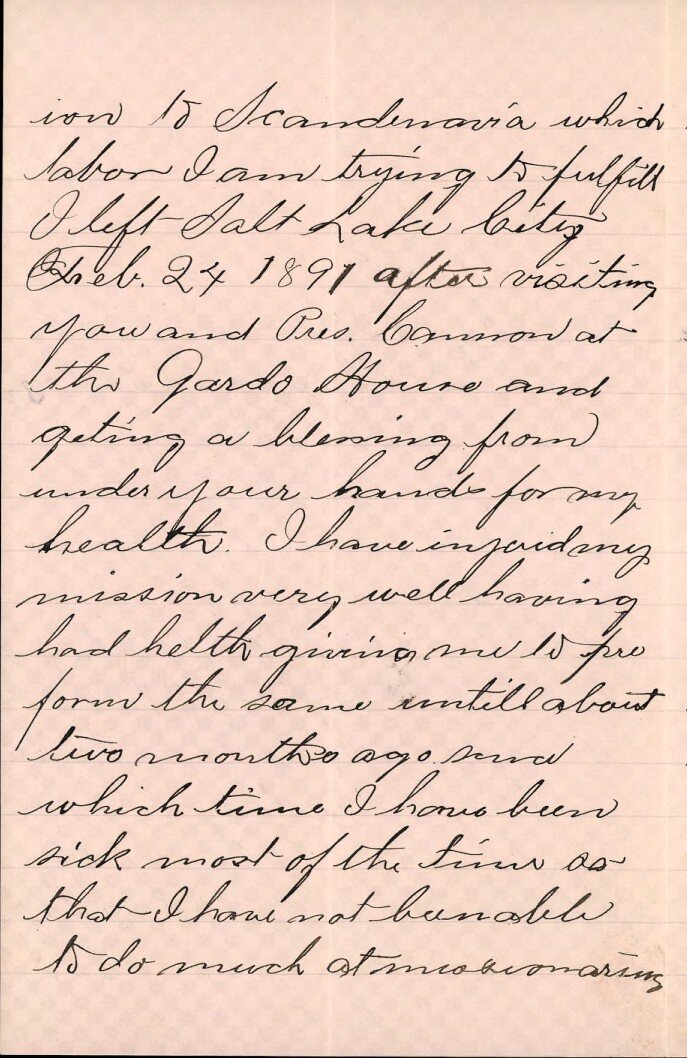 ion to Scandenavia which
labor I am trying to fulfill
I left Salt Lake City
Feb. 24 1891 after visiting
you and Pres. Cannon at
the Gardo House and
geting a blessing from
under your hands for my
health. I have injoid my
mission very well having
had helth giving me to pre
form the same untill about
two months ago send
which time I have been
sick most of the time so
that I have not been able
to do much at missionaring